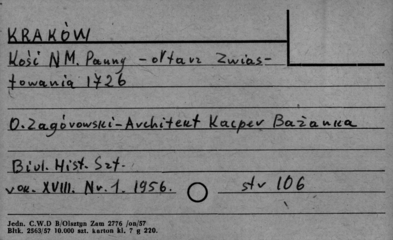 KRAKÓW
Kość NM. Panny - ołtarz Zwias-
towania 1726
O. Zagórowski - Architekt Kacper Bażanka
Biul. Hist. Szt.
rok. XVIII. Nr. 1. 1956. str 106
Jedn. C.W.D B/Olsztyn Zam 2776 /on/57
Bltk. 2563/57 10.000 szt. karton kl. 7 g 220.